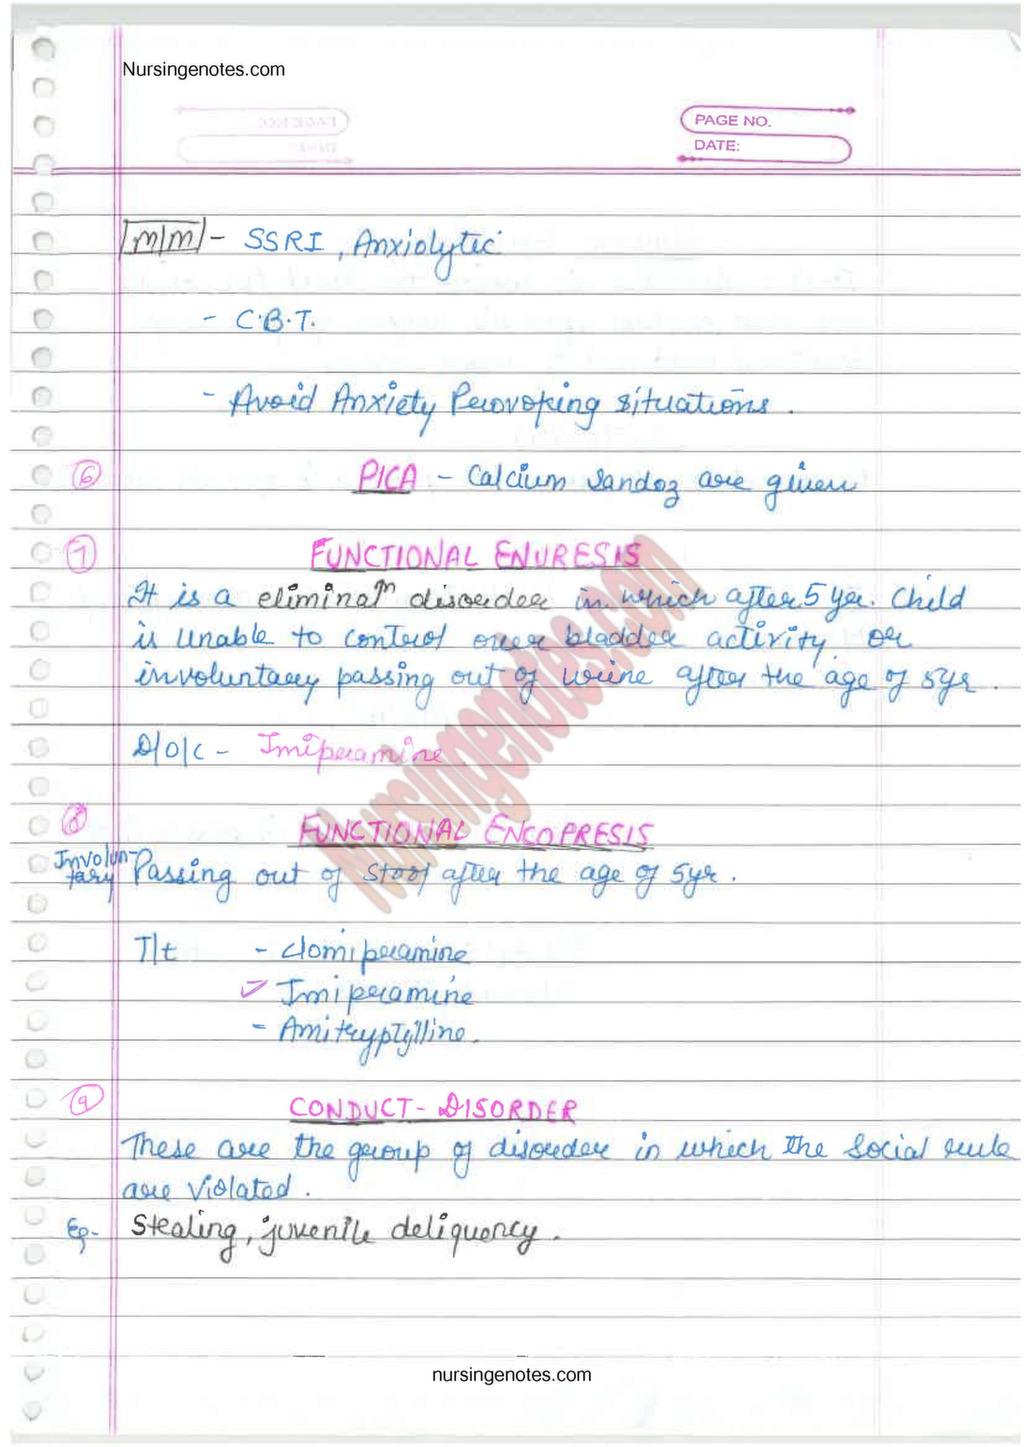 Nursingenotes.com
PAGE NO.
DATE:
M/M - SSRI, Anxiolytic
- C.B.T.
- Avoid Anxiety Perovoking situations.
6 PICA - Calcium Sandoz are given
7 FUNCTIONAL ENURESIS
It is a eliminatn disorder in which after 5 yr. Child
is unable to control over bladder activity or
involuntary passing out of urine after the age of 5yr.
D/O/C - Imipramine
8 FUNCTIONAL ENCOPRESIS
Involuntary Passing out of stool after the age of 5yr.
T/t - Clomipramine
- Imipramine
- Amitryptylline.
9 CONDUCT-DISORDER
These are the group of disorder in which the Social rule
are violated.
Eg- Stealing, juvenile deliquency.
Nursingenotes.com
nursingenotes.com